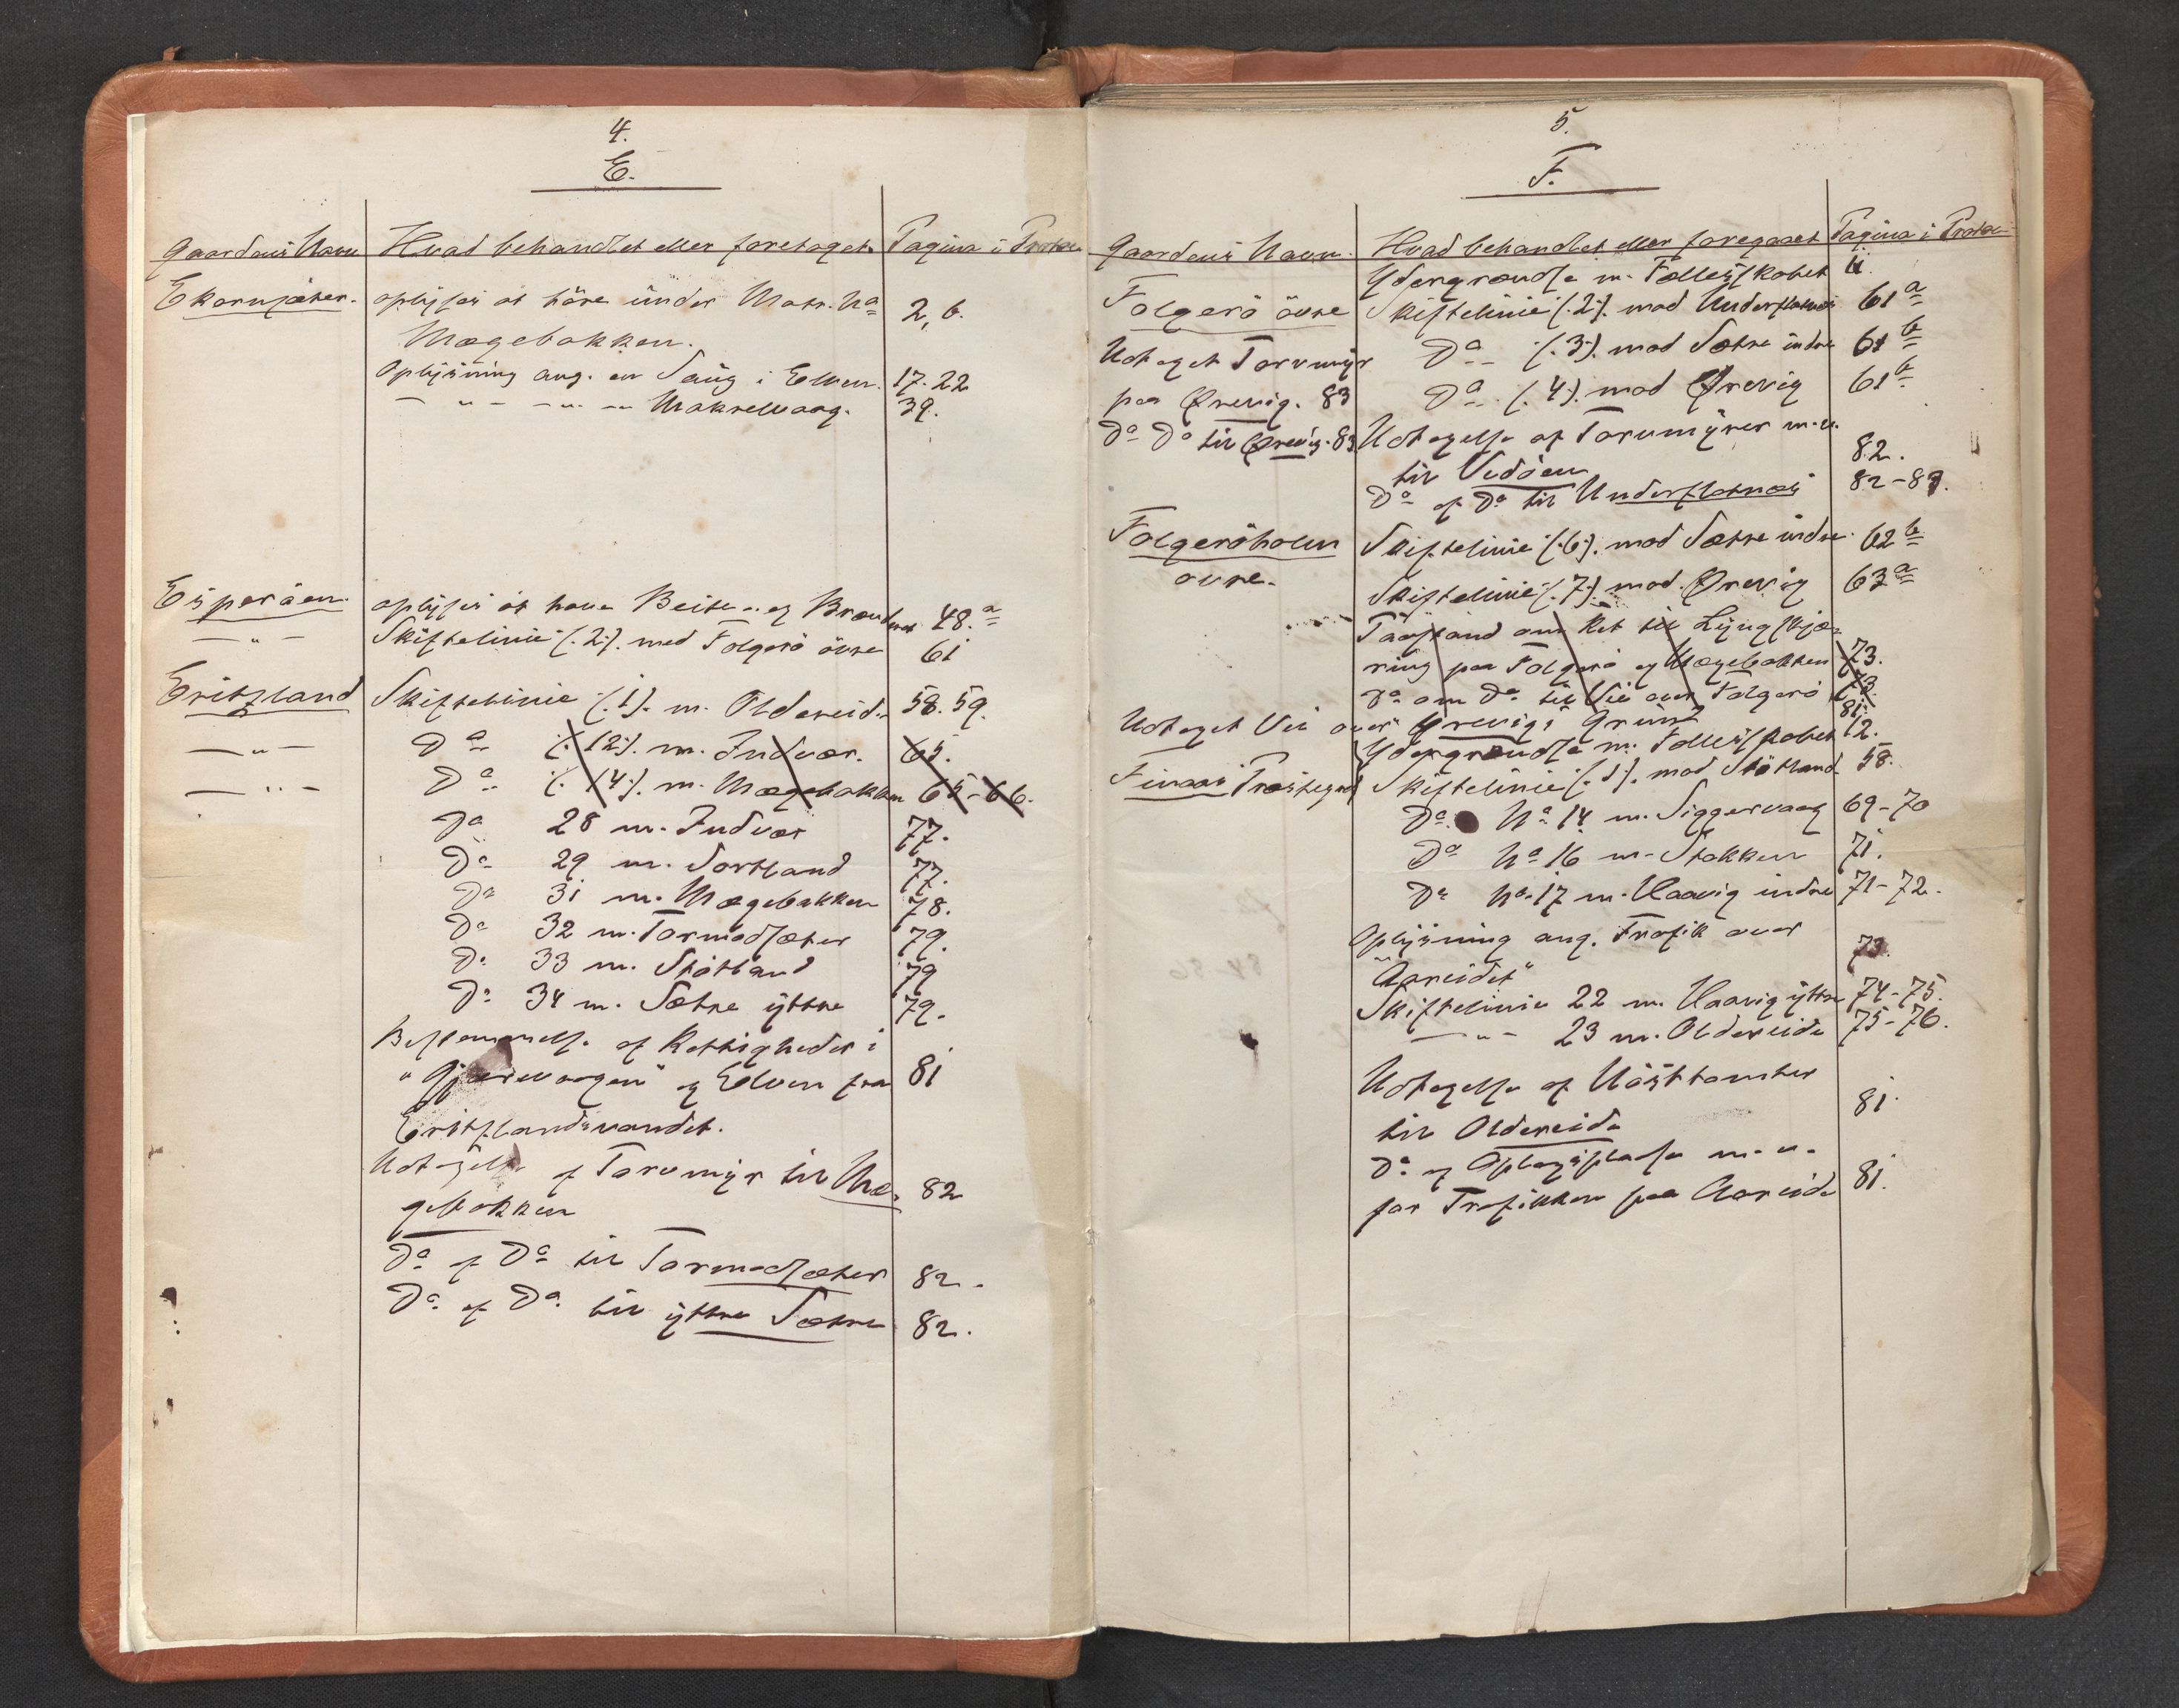 4.
E.
Gaardens Navn Hvad behandlet eller foretaget. Pagina i Protoc
Ekornsæter. oplyses at höre under Matr. No 2, 6.
Mægebakken.
Oplysning ang. en Saug i Elven. 17. 22
— " — — " — Makrelvaag. 39.
Esperöen. oplyses at have Beite- og Brændret 48.a
— " — Skiftelinie (:2:). med Folgerö övre 61
Eritzland Skiftelinie (:1:). m. Oldereide 58. 59.
— " — Do (:12:). m. Indvær. 65.
— " — Do (:14:). m. Mægebakken 65-66.
Do 28 m. Indvær 77.
Do 29 m. Sortland 77.
Do 31 m. Mægebakken 78.
Do 32 m. Tormodsæter 79.
Do 33 m. Stötland 79
Do 34 m. Sætre yttre 79.
Bestemmelse af Rettigheder i
"Gjærevaagen" og Elven fra 81
Eritslandsvandet.
Udtagelse af Torvmyr til Mæ- 82
gebakken
Do af Do til Tormodsæter 82.
Do af Do til yttre Sætre 82.
5.
F.
Gaardens Navn. Hvad behandlet eller foregaaet Pagina i Protoc
Ydergrændse m. Fællesskabet 11.
Folgerö övre Skiftelinie (:2:). mod Underslotnæs 61a
Udtaget Torvmyr Do (:3:). mod Sætre indre 61b
paa Ørevig. 83 Do (:4:). mod Ørevig 61b
Do Do til Ørevig. 83 Udtagelse af Torvmyrer m.v.
til Vidöen 82.
Do af Do til Underslotnæs 82-83.
Folgeröholm Skiftelinie (:6:). mod Sætre indre 62b
övre. Skiftelinie (:7:). mod Ørevig 63a
Paastand om Ret til Lyngskjæ-
ring paa Folgerö og Mægebakken 73.
Do om Do til Vei over Folgerö 73.
Udtaget Vei over Ørevigs Grund 81.
Ydergrændse m. Fællesskabet 12.
Finaas Præstegaard Skiftelinie (:1:). mod Stötland 58.
Do No 14 m. Siggervaag 69-70
Do No 16 m. Stokken 71.
Do No 17 m. Vaavig indre 71-72.
Oplysning ang. Trafik over
"Aareidet" 73.
Skiftelinie 22 m. Vaavig yttre 74-75.
— " — 23 m. Oldereide 75-76.
Udtagelse af Nösttomter
til Oldereide 81.
Do af Oplagspladse m.v.
for Trafikken paa Aareide 81.